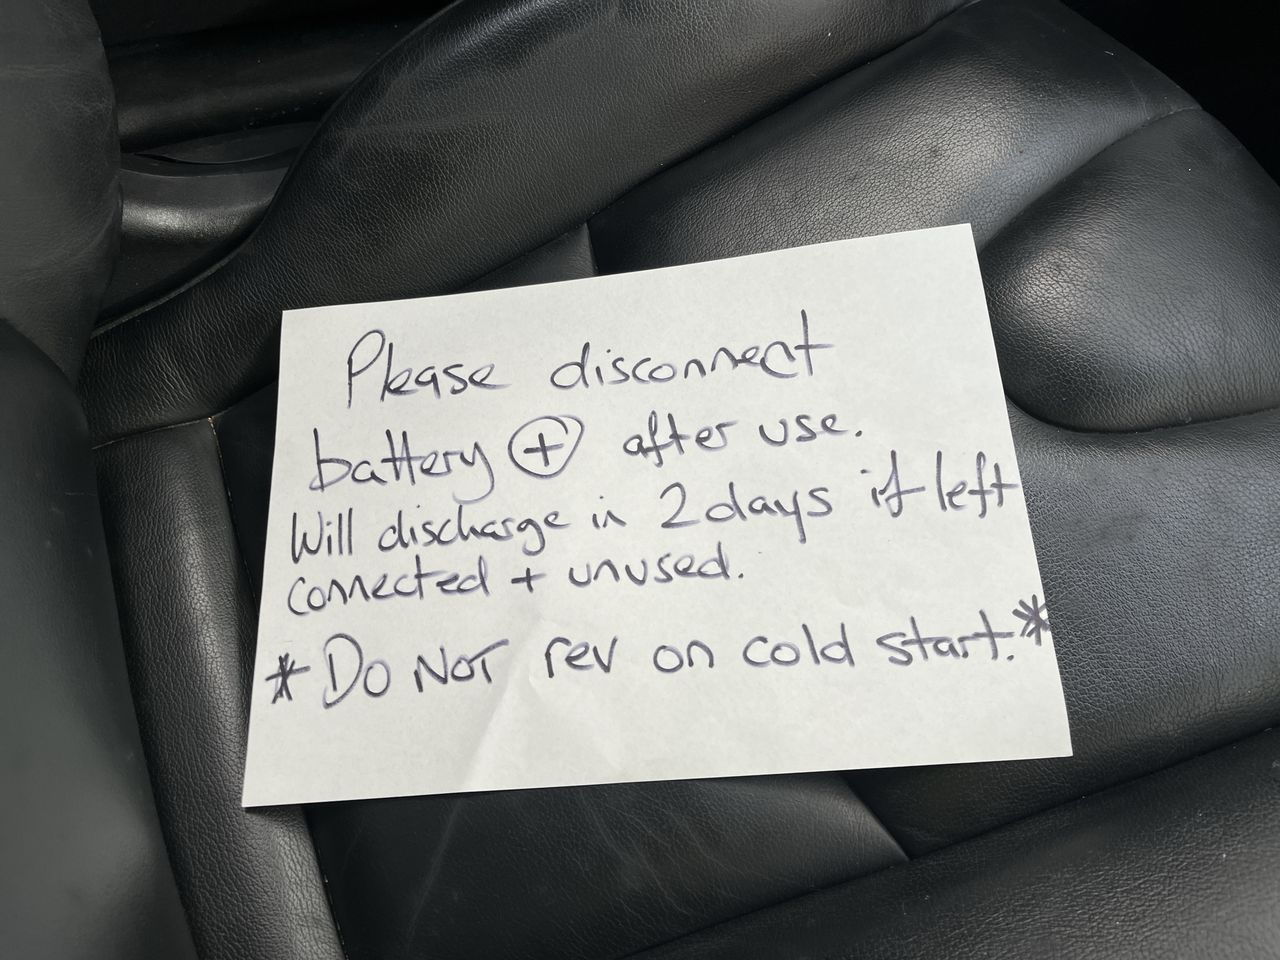 Please disconnect
battery ⊕ after use.
Will discharge in 2 days if left
connected + unused.
*Do NOT rev on cold start.*